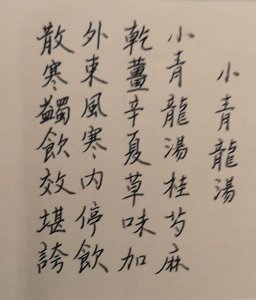 小青龍湯
小青龍湯桂芍麻
乾薑辛夏草味加
外束風寒內停飲
散寒蠲飲效堪誇